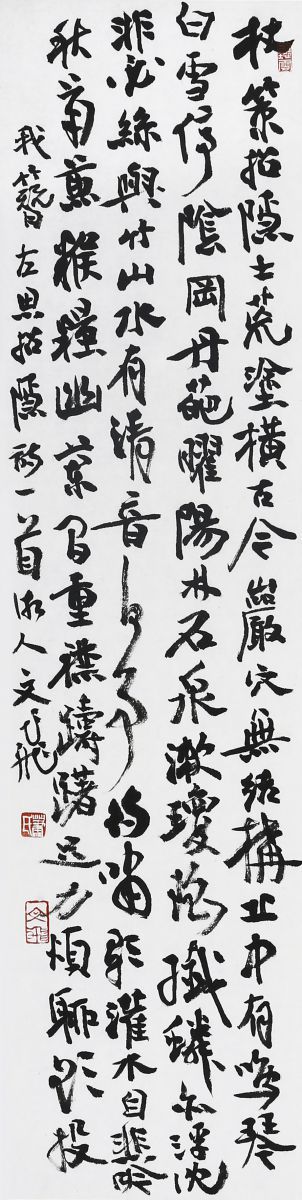 杖策招隱士荒塗橫古今巖穴無結構丘中有鳴琴
白雪停陰岡丹葩曜陽林石泉漱瓊瑤纖鱗亦浮沈
非必絲與竹山水有清音何事待嘯歌灌木自悲吟
秋菊兼糇糧幽蘭間重襟躊躇足力煩聊欲投
我簪左思招隱詩一首湘人文飛